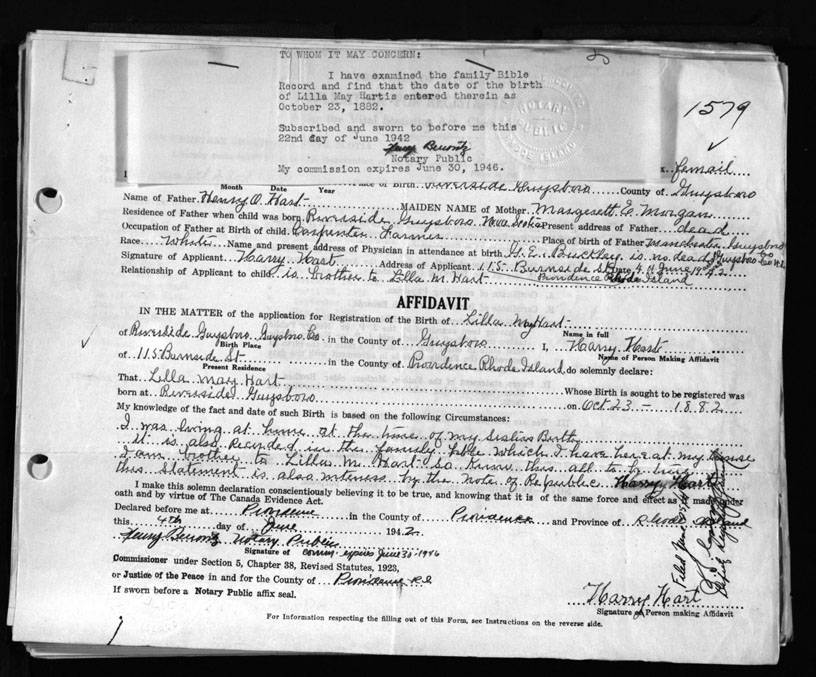 TO WHOM IT MAY CONCERN:
I have examined the family Bible
Record and find that the date of the birth
of Lilla May Hartis entered therein as
October 23, 1882.
Subscribed and sworn to before me this
22nd day of June 1942
Notary Public
My commission expires June 30, 1946.
NOTARY
PUBLIC
1579
Femail
Month Date Year Place of Birth Riverside Guysboro County of Guysboro
Name of Father Henry O. Hart MAIDEN NAME of Mother Margarett E. Morgan
Residence of Father when child was born Riverside Guysboro Nova Scotia Present address of Father dead
Occupation of Father at Birth of child Carpenter Farmer Place of birth of Father Guysboro
Race White Name and present address of Physician in attendance at birth G. E. Buckley is no. dead Guysboro Co N.S.
Signature of Applicant Harry Hart Address of Applicant 115 Burnside St Date 4th June 1942
Relationship of Applicant to child is brother to Lilla M. Hart Providence Rhode Island
AFFIDAVIT
IN THE MATTER of the application for Registration of the Birth of Lilla May Hart
Name in full
of Riverside Guysboro Guysboro Co in the County of Guysboro I, Harry Hart
Birth Place Name of Person Making Affidavit
of 115 Burnside St in the County of Providence Rhode Island, do solemnly declare:
Present Residence
That Lilla May Hart Whose Birth is sought to be registered was
born at Riverside Guysboro on Oct 23 - 1882
My knowledge of the fact and date of such Birth is based on the following Circumstances:
I was living at home at the time of my Sisters Birth
it is also Recorded in the family bible which I have here at my house
I am brother to Lilla M. Hart So know this all to be true
this Statement is also witness by the Note of Republic Harry Hart
I make this solemn declaration conscientiously believing it to be true, and knowing that it is of the same force and effect as if made under
oath and by virtue of The Canada Evidence Act.
Declared before me at Providence in the County of Providence and Province of Rhode Island
this 4th day of June 1942
Notary Public
Signature of Comm. expires June 30-1946
Commissioner under Section 5, Chapter 38, Revised Statutes, 1923,
or Justice of the Peace in and for the County of Providence R.I.
If sworn before a Notary Public affix seal.
Harry Hart
Signature of Person making Affidavit
For Information respecting the filling out of this Form, see Instructions on the reverse side.
Filed